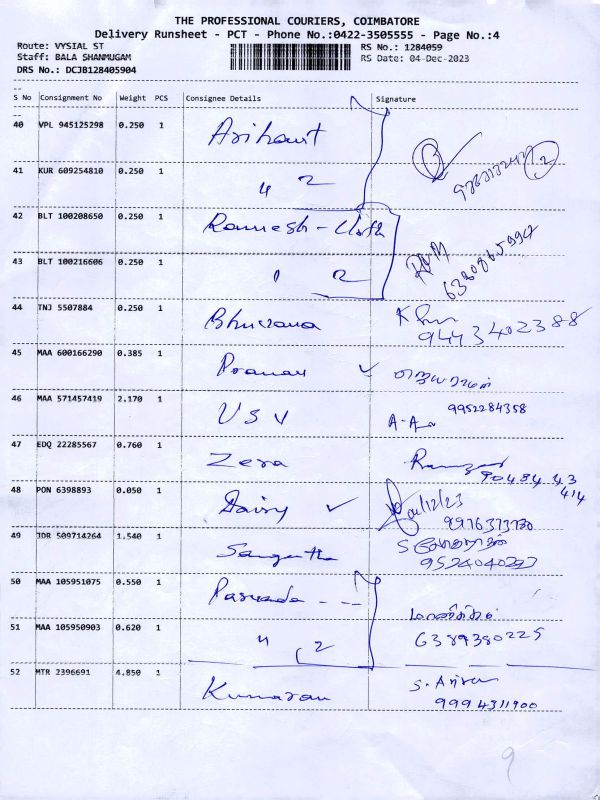 THE PROFESSIONAL COURIERS, COIMBATORE
Delivery Runsheet - PCT - Phone No.:0422-3505555 - Page No.:4
Route: VYSIAL ST
RS No.: 1284059
Staff: BALA SHANMUGAM
RS Date: 04-Dec-2023
DRS No.: DCJB128405904
S No Consignment No Weight PCS Consignee Details Signature
40 VPL 945125298 0.250 1 Arihant
41 KUR 609254810 0.250 1 " 2
42 BLT 100208650 0.250 1 Ramesh - Cloth
43 BLT 100216606 0.250 1 2
6380865992
44 TNJ 5507884 0.250 1 Bhuvana
9443402388
45 MAA 600166290 0.385 1 Pranav ✓
46 MAA 571457419 2.170 1 U S V 9952284358
47 EDQ 22285567 0.760 1 Zera
9048443
414
48 PON 6398893 0.050 1 Dairy ✓ 04/12/23
9976373730
49 JDR 509714264 1.540 1 Sangeetha
9524040297
50 MAA 105951075 0.550 1
51 MAA 105950903 0.620 1 " 2 6389380225
52 MTR 2396691 4.850 1 Kumaran
9994311900
9